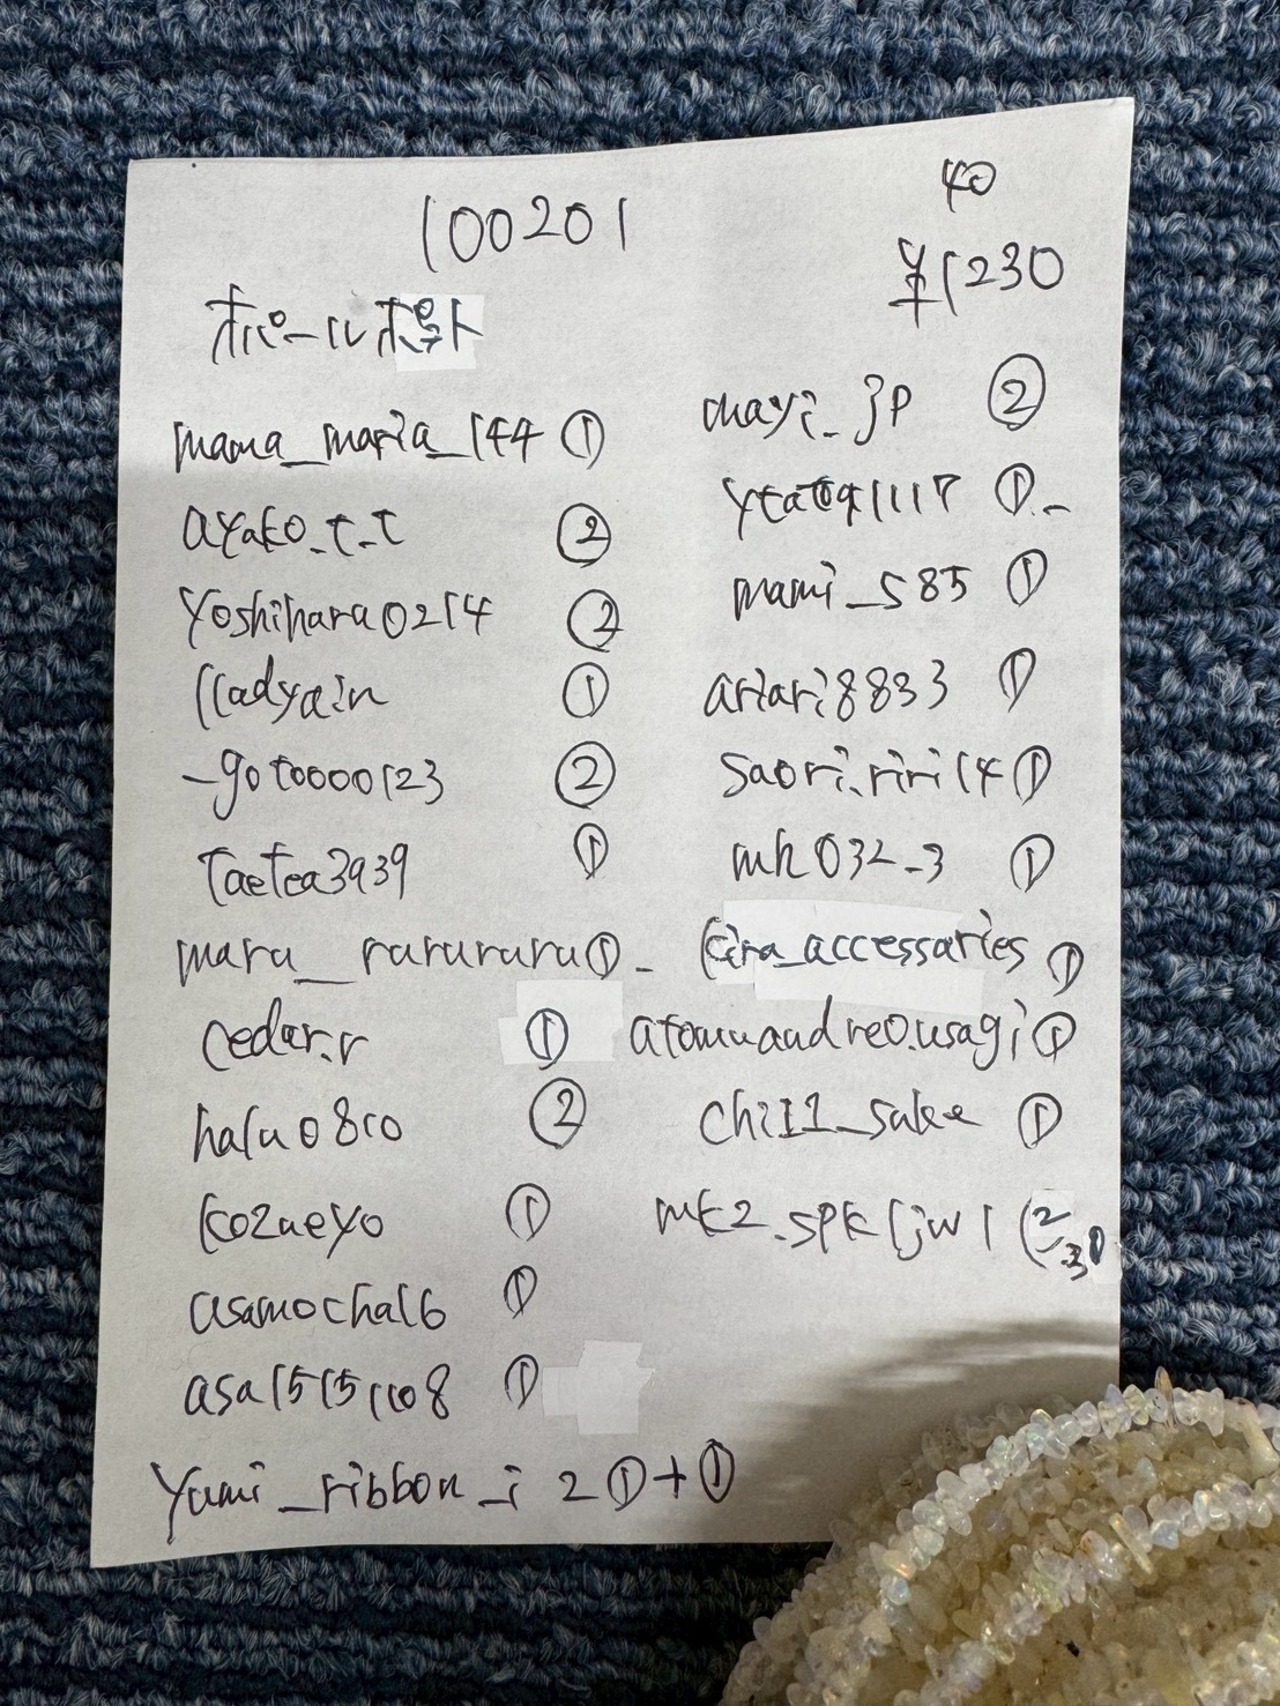 100201
40
¥1230
mama_maria_144 ①
ayako_t_t ②
yoshiharu0214 ②
lladyain ①
_gotoooo123 ②
taetea3939 ①
maru__rurururu①_
cedar.r ①
halu0810 ②
kozueyo ①
asamocha16 ①
asa15151108 ①
yumi_ribbon_i 2①+①
mayi_jp ②
ytatoq1117 ①_
mami_585 ①
ariari8833 ①
saori.riri14①
mk032_3 ①
kira_accessaries ①
atomuandreo.usagi①
chi11_sake ①